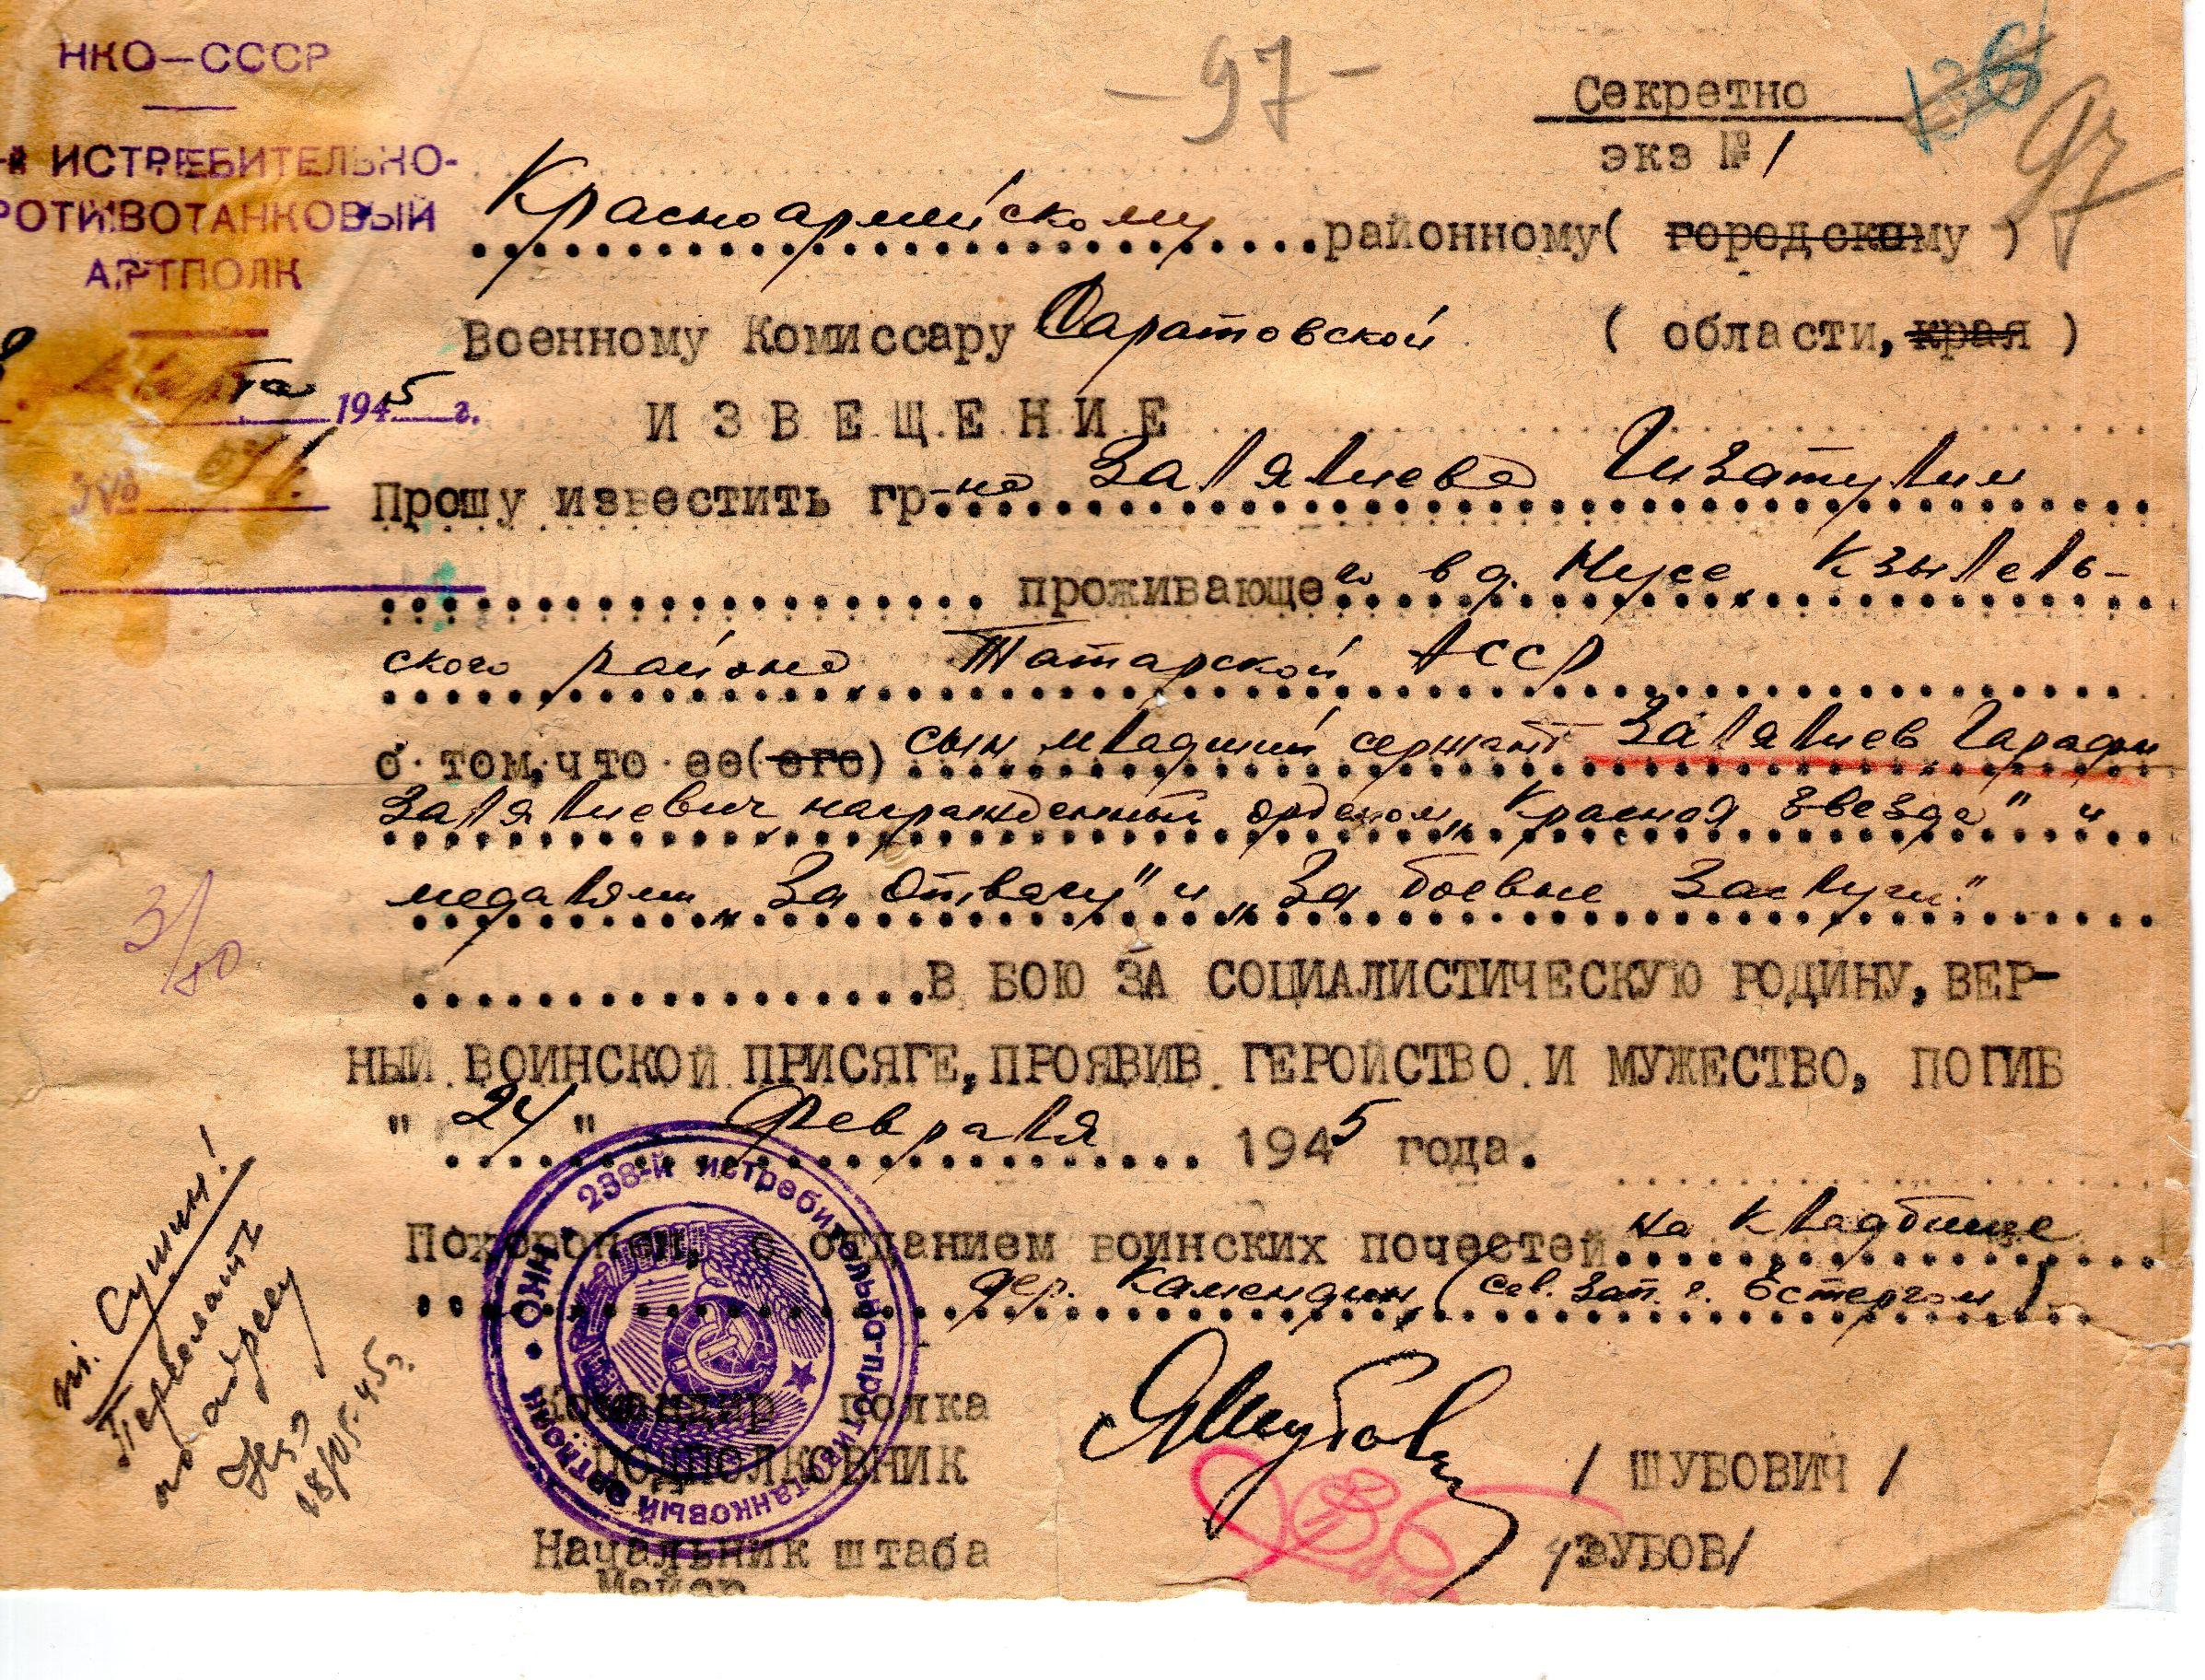 НКО—СССР
-й ИСТРЕБИТЕЛЬНО-
РОТИВОТАНКОВЫЙ
АРТПОЛК
8 марта 1945 г.
№
- 97 -
Секретно
экз № 1
136
97
Красноармейскому районному( городскому )
Военному Комиссару Саратовской ( области, края )
ИЗВЕЩЕНИЕ
Прошу известить гр-на Залялиева Гизатулин
проживающего в д. Мусе, Кзылель-
ского района Татарской АССР
о том, что ее(его) сын младший сержант Залялиев Гарафи
Залялиевич награжденный орденом „Красная Звезда" и
медалями „За Отвагу" и „За боевые Заслуги."
В БОЮ ЗА СОЦИАЛИСТИЧЕСКУЮ РОДИНУ, ВЕР-
НЫЙ ВОИНСКОЙ ПРИСЯГЕ, ПРОЯВИВ ГЕРОЙСТВО И МУЖЕСТВО, ПОГИБ
" 24 " Февраля 1945 года.
Похоронен, с отданием воинских почестей на кладбище
дер. Камендин (сев. зап. г. Естергом)
Командир полка
подполковник / ШУБОВИЧ /
Начальник штаба /ЗУБОВ/
Майор
238-й истребительно противотанковый артполк • ОНН •
3/80
т. Сушин!
Переслать
по адресу
18/05-45г.